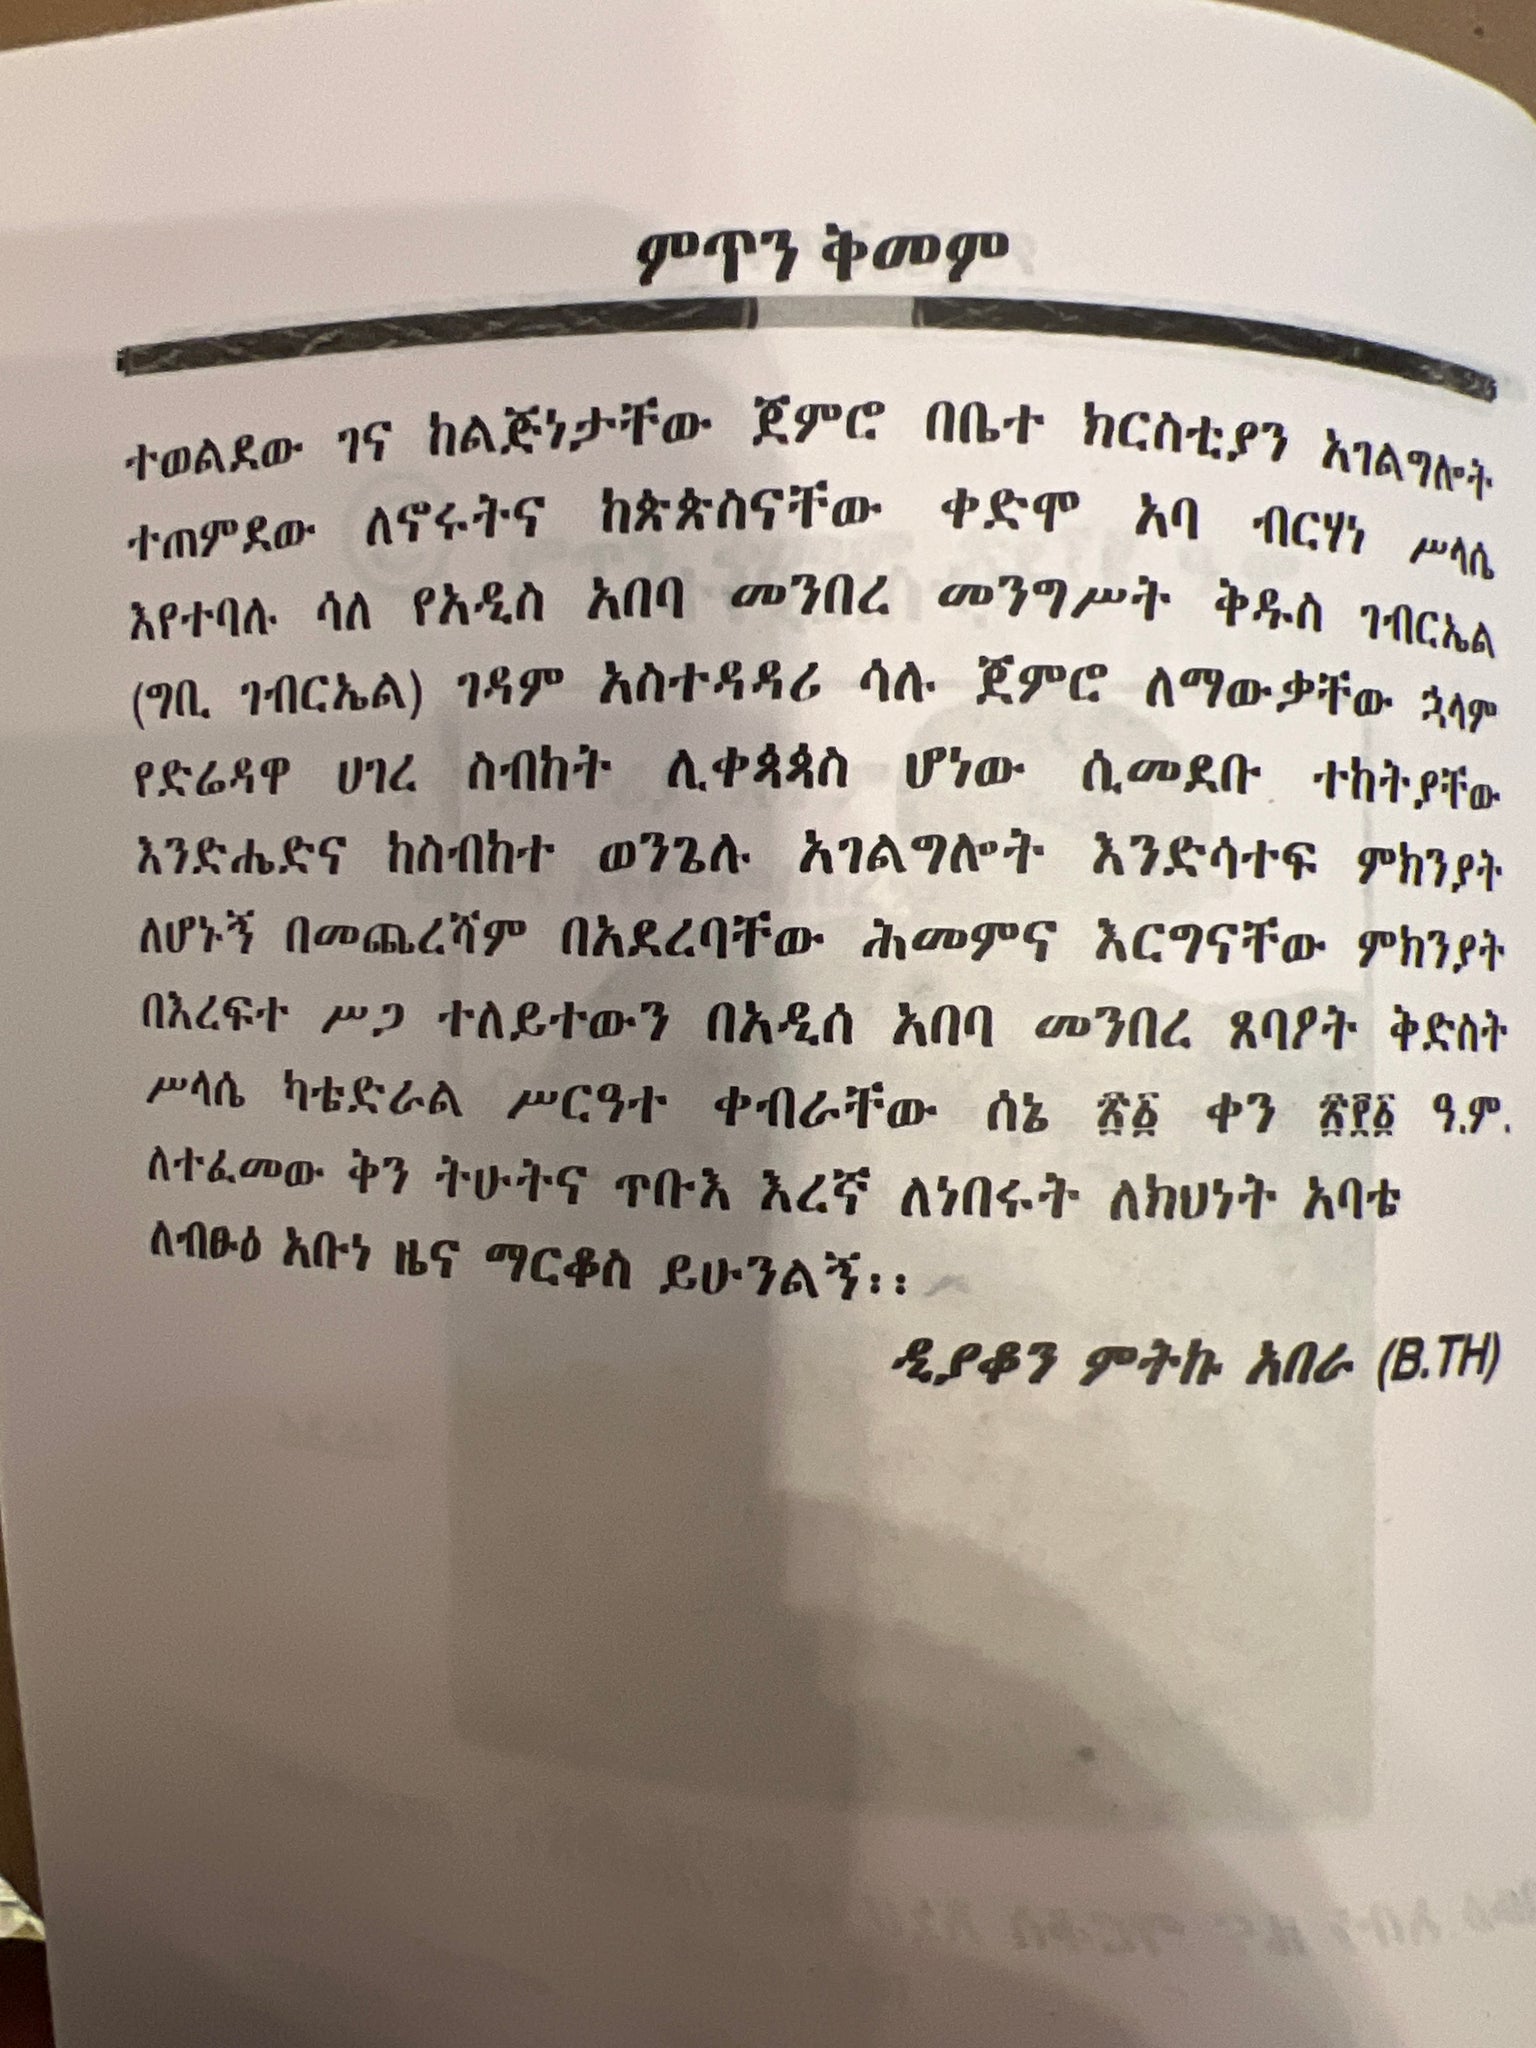 ምጥን ቅመም
ተወልደው ገና ከልጅነታቸው ጀምሮ በቤተ ክርስቲያን አገልግሎት
ተጠምደው ለኖሩትና ከጵጵስናቸው ቀድሞ አባ ብርሃነ ሥላሴ
እየተባሉ ሳለ የአዲስ አበባ መንበረ መንግሥት ቅዱስ ገብርኤል
(ግቢ ገብርኤል) ገዳም አስተዳዳሪ ሳሉ ጀምሮ ለማውቃቸው ኋላም
የድሬዳዋ ሀገረ ስብከት ሊቀጳጳስ ሆነው ሲመደቡ ተከትያቸው
እንድሔድና ከስብከተ ወንጌሉ አገልግሎት እንድሳተፍ ምክንያት
ለሆኑኝ በመጨረሻም በአደረባቸው ሕመምና እርግናቸው ምክንያት
በእረፍተ ሥጋ ተለይተውን በአዲሰ አበባ መንበረ ጸባዖት ቅድስት
ሥላሴ ካቴድራል ሥርዓተ ቀብራቸው ሰኔ ቀን ዓ.ም.
ለተፈመው ቅን ትሁትና ጥቡእ እረኛ ለነበሩት ለክህነት አባቴ
ለብፁዕ አቡነ ዜና ማርቆስ ይሁንልኝ፡፡
ዲያቆን ምትኩ አበራ (B.TH)